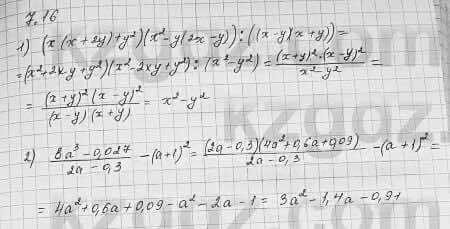 7.16
1) (x(x+2y)+y²)(x²-y(2x-y)):((x-y)(x+y))=
=(x²+2xy+y²)(x²-2xy+y²):(x²-y²)=\frac{(x+y)²·(x-y)²}{x²-y²}=
=\frac{(x+y)²(x-y)²}{(x-y)(x+y)}=x²-y²
2) \frac{8a³-0,027}{2a-0,3}-(a+1)²=\frac{(2a-0,3)(4a²+0,6a+0,09)}{2a-0,3}-(a+1)²=
=4a²+0,6a+0,09-a²-2a-1=3a²-1,4a-0,91